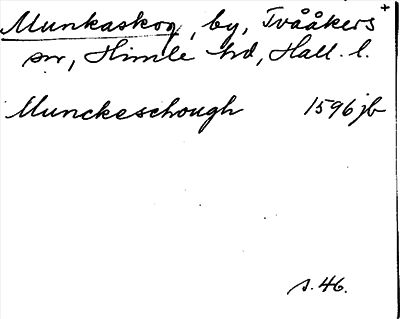 Munkaskog, by, Tvååkers +
sn, Himle hd, Hall. l.
Munckeschough 1596 jb
s. 46.